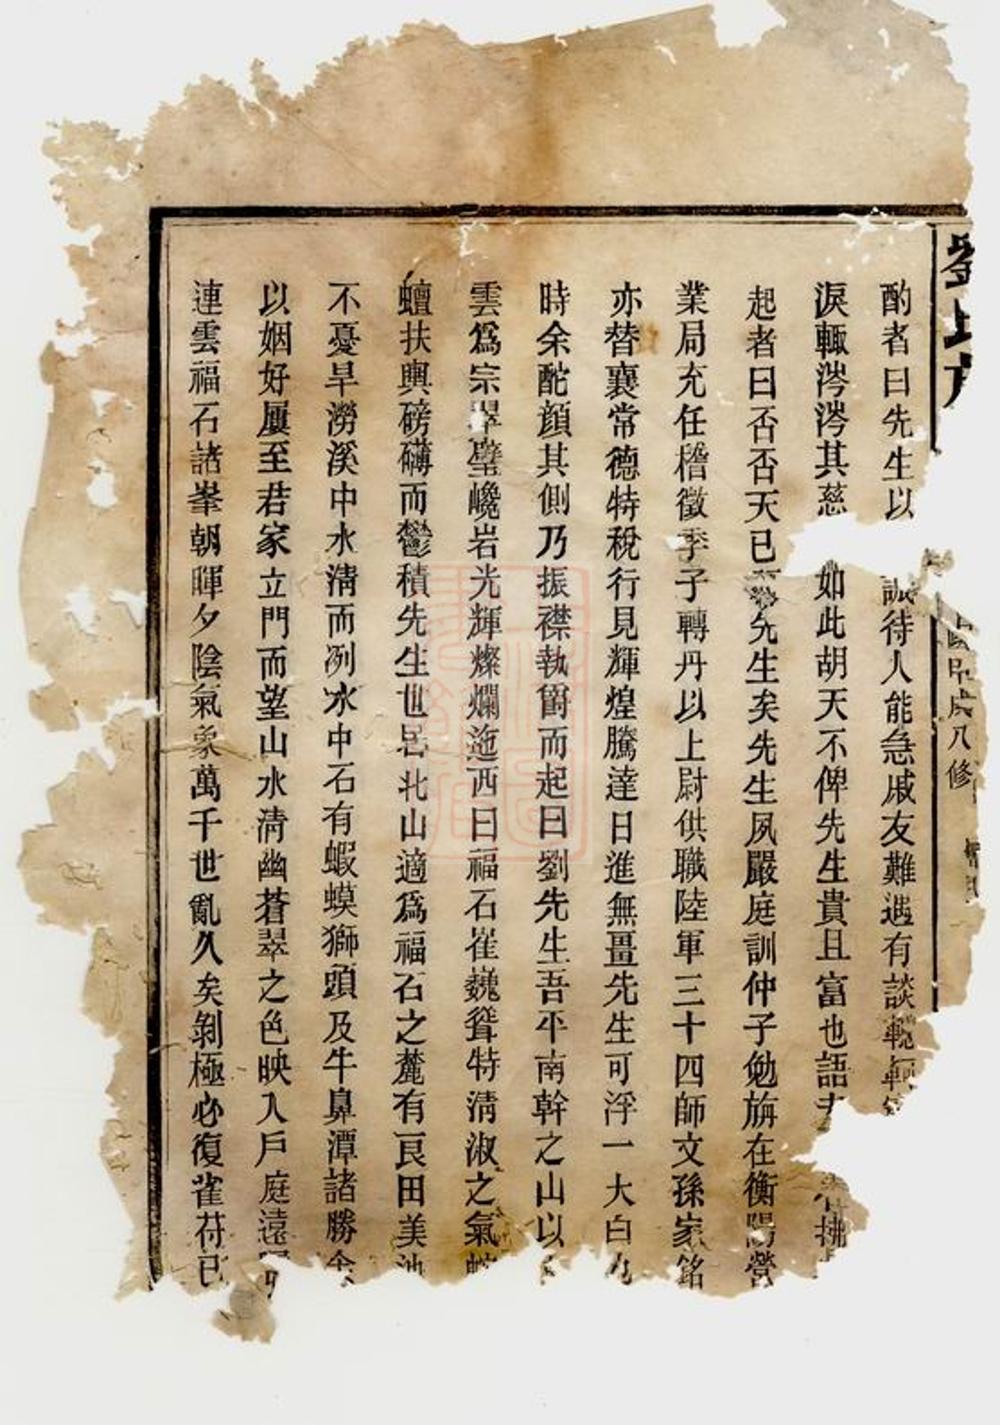 劉氏
八修
酌者曰先生以 誠待人能急戚友難遇有談
淚輒涔涔其慈 如此胡天不俾先生貴且富也語
起者曰否否天已 先生矣先生夙嚴庭訓仲子勉旃在衡陽營
業局充任稽徵季子轉丹以上尉供職陸軍三十四師文孫家銘
亦替襄常德特稅行見輝煌騰達日進無疆先生可浮一大白
時余酡顏其側乃振襟執爵而起曰劉先生吾平南幹之山以
雲爲宗翠壁巉岩光輝燦爛迤西曰福石崔巍聳特清淑之氣
蟺扶輿磅礴而鬱積先生世邑北山適爲福石之麓有良田美池
不憂旱澇溪中水清而冽水中石有蝦蟆獅頭及牛鼻潭諸勝余
以姻好屢至君家立門而望山水清幽蒼翠之色映入戶庭遠
連雲福石諸峯朝暉夕陰氣象萬千世亂久矣剝極必復雀苻已